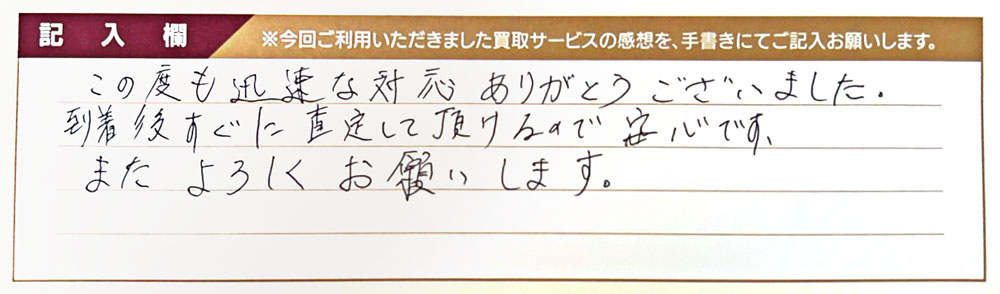 記入欄
※今回ご利用いただきました買取サービスの感想を、手書きにてご記入お願いします。
この度も迅速な対応ありがとうございました.
到着後すぐに査定して頂けるので安心です、
またよろしくお願いします。